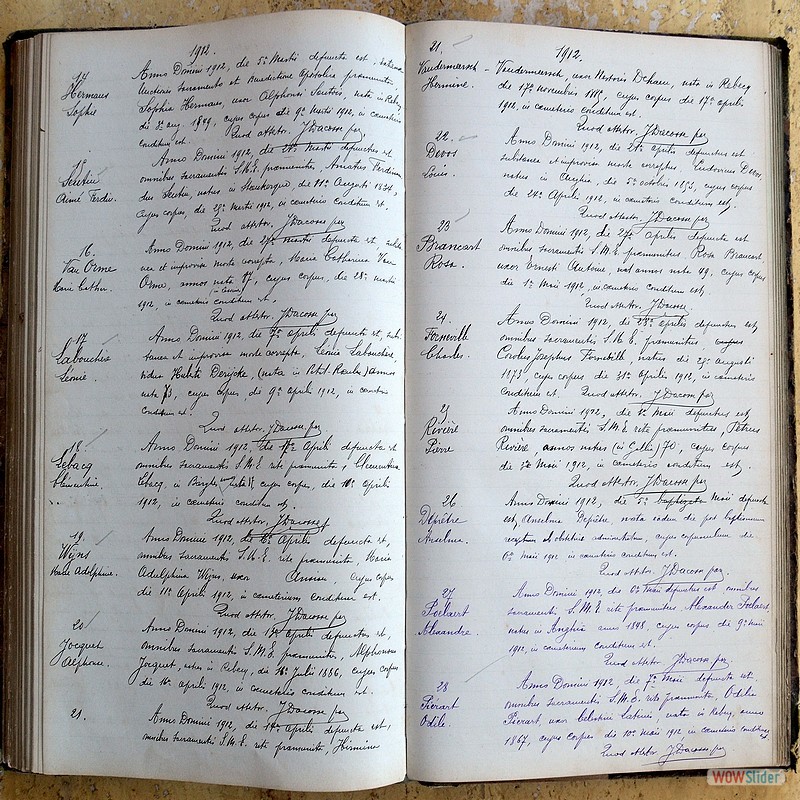 1912.
14
Hermans
Sophie
Anno Domini 1912, die 5ª Martii defuncta est,
Sacramento et Benedictione Apostolica praemunita,
Sophia Hermans, uxor Alphonsi Seutin, nata in Rebecq
die 3ª aug. 1849, cujus corpus die 9ª Martii 1912, in cœmeterio
conditum est. Quod attestor. J Dacosse par
Seutin
Aimé Ferdin.
Anno Domini 1912, die Martii defunctus est
omnibus sacramentis S.M.E. praemunitus, Amatus Ferdinan
dus Seutin, natus in die 11ª Augusti
cujus corpus, die Martii 1912, in cœmeterio conditum est.
Quod attestor. J Dacosse par
16.
Van Orme
Marie Cather.
Anno Domini 1912, die 27ª Martii defuncta est,
nea et improvisa morte correpta, Maria Catharina Van
Orme, annos nata cujus corpus, die 28ª Martii
1912, in cœmeterio conditum est.
Quod attestor. J Dacosse par
17
Labouchère
Léonie.
Anno Domini 1912, die 7ª aprilis defuncta est, subi
tanea et improvisa morte correpta, Léonie Labouchère,
vidua Derycke, (nata in annos
nata 73, cujus corpus die 9ª aprilis 1912, in cœmeterio
conditum est.
Quod attestor. J Dacosse par
18.
Lebacq
Clémentine.
Anno Domini 1912, die Aprilis defuncta est
omnibus sacramentis S.M.E. rite praemunita, Clementina
Lebacq, in cujus corpus, die 10ª aprilis
1912, in cœmeterio conditum est.
Quod attestor. J Dacosse
19.
Wyns
Marie Adelphine.
Anno Domini 1912, die Aprilis defuncta est,
omnibus sacramentis S.M.E. rite praemunita, Maria
Adelphina Wyns, uxor cujus corpus
die 11ª Aprilis 1912, in cœmeterium conditum est.
Quod attestor. J Dacosse par
20
Jocquet
Alphonse.
Anno Domini 1912, die Aprilis defunctus est,
omnibus sacramentis S.M.E. praemunitus, Alphonsus
Jocquet, natus in Rebecq, die Julii 1886, cujus corpus
die 16ª aprilis 1912, in cœmeterio conditum est.
Quod attestor. J Dacosse par
21.
Anno Domini 1912, die Aprilis defuncta est,
omnibus sacramentis S.M.E. rite praemunita, Hermina
21.
1912.
Vandermeersch
Hermine.
Vandermeersch, uxor Nestoris Dehaen, nata in Rebecq
die 17ª novembris cujus corpus die 17ª aprilis
1912, in cœmeterio conditum est.
Quod attestor. J Dacosse par
22.
Devos
Louis.
Anno Domini 1912, die 21ª aprilis defunctus est
subitanea et improvisa morte correptus, Ludovicus Devos,
natus in Anghia, die 5ª octobris 1873, cujus corpus
die 24ª Aprilis 1912, in cœmeterio conditum est.
Quod attestor. J Dacosse par
23
Brancart
Rosa.
Anno Domini 1912, die 27ª Aprilis defuncta est
omnibus sacramentis S.M.E. praemunita Rosa Brancart
uxor Ernesti Antoine, annis nata 49, cujus corpus
die 1ª Mai 1912, in cœmeterio conditum est.
Quod attestor. J Dacosse
24.
Forneville
Charles.
Anno Domini 1912, die 28ª aprilis defunctus est
omnibus sacramentis S.M.E. praemunitus,
Carolus Josephus Forneville natus die 29ª augusti
1873, cujus corpus die 31ª Aprilis 1912, in cœmeterio
conditum est. Quod attestor. J Dacosse par
25
Rivière
Pierre
Anno Domini 1912, die 1ª Mai defunctus est,
omnibus sacramentis S.M.E. rite praemunitus, Petrus
Rivière, annos natus (in Gallia) 70, cujus corpus
die 3ª Mai 1912, in cœmeterio conditum est.
Quod attestor. J Dacosse par
26
Depêtre
Anselma.
Anno Domini 1912, die 5ª baptizata Mai defuncta
est, Anselma Depêtre, nata eadem die post baptismum
receptum ab obstetrice administratum, cujus corpusculum die
6ª Mai 1912 in cœmeterio conditum est.
Quod attestor. J Dacosse par
27
Poelaert
Alexandre.
Anno Domini 1912, die 6ª Mai defunctus est omnibus
sacramentis S.M.E. rite praemunitus Alexander Poelaert
natus in Anghia anno 1848, cujus corpus die 9ª Mai
1912, in cœmeterium conditum est.
Quod attestor J Dacosse par.
28
Piérart
Odile.
Anno Domini 1912, die 7ª Mai defuncta est
omnibus sacramentis S.M.E. rite praemunita, Odilia
Piérart, uxor Celestini Laterin, nata in Rebecq, anno
1867, cujus corpus die 10ª Mai 1912, in cœmeterio conditum est.
Quod attestor. J Dacosse par
WOWSlider